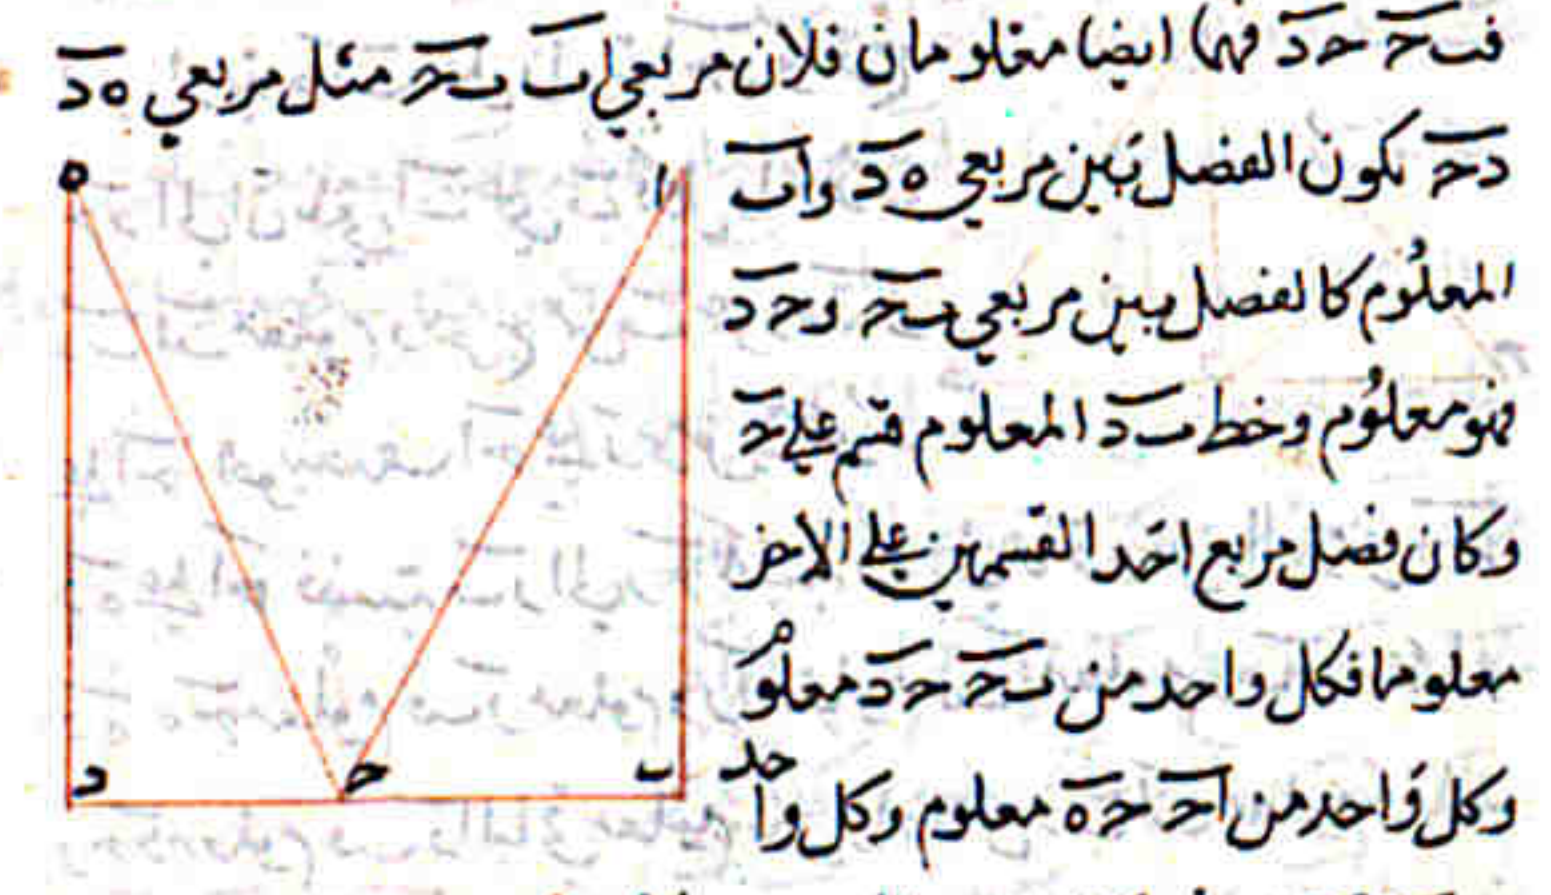 فبح حد فهما ايضا معلومان فلان مربعي اب بح مثل مربعي ه د
دح يكون الفضل بين مربعي ه د واب
المعلوم كالفضل بين مربعي بح وحد
فهو معلوم وخط بد المعلوم قسم على ح
وكان فضل مربع احد القسمين على الاخر
معلوما فكل واحد من بح حد معلوم
وكل واحد من اح حه معلوم وكل واحد
ا
ه
ب
ح
د